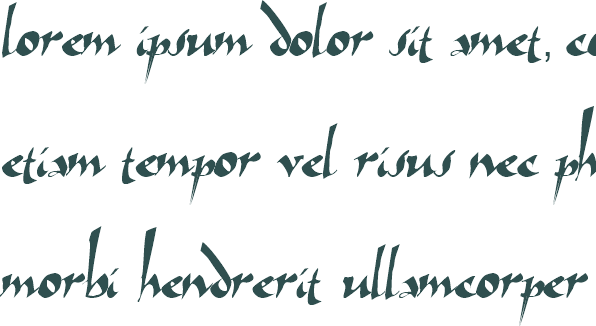 lorem ipsum dolor sit amet, co
etiam tempor vel risus nec ph
morbi hendrerit ullamcorper